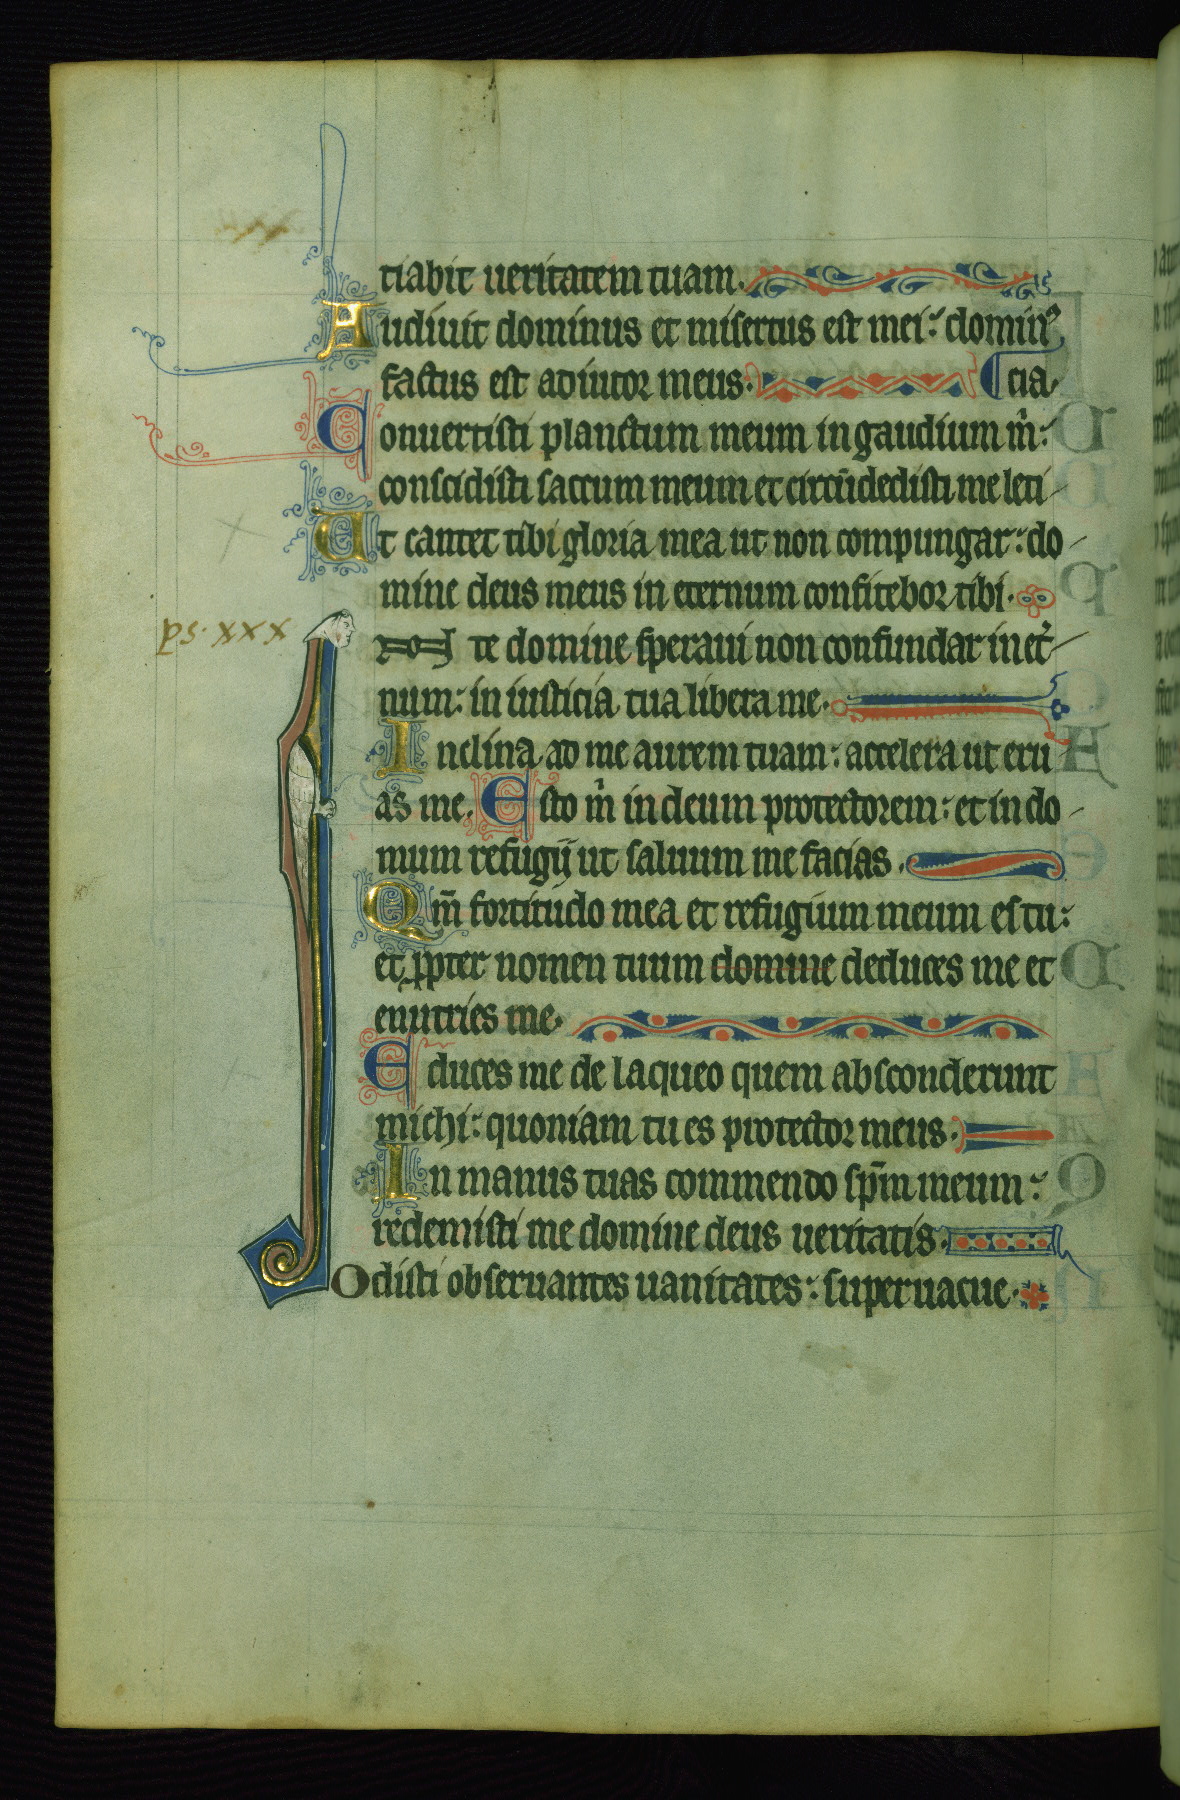 tiabit ueritatem tuam.
Audiuit dominus et misertus est mei: dominꝰ
factus est adiutor meus. ¶ cia.
Conuertisti planctum meum in gaudium m̄:
conscidisti saccum meum et circūdedisti me leti
Ut cantet tibi gloria mea ut non compungar: do
mine deus meus in eternum confitebor tibi.
ps. xxx
te domine speraui non confundar in et̄
num: in iusticia tua libera me.
Inclina ad me aurem tuam: accelera ut eru
as me. Esto m̄ in deum protectorem: et in do
mum refugij ut saluum me facias.
Qm̄ fortitudo mea et refugium meum es tu:
et ꝓpter nomen tuum domine deduces me et
enutries me.
Educes me de laqueo quem absconderunt
michi: quoniam tu es protector meus.
In manus tuas commendo sp̄m meum:
redemisti me domine deus ueritatis.
Odisti obseruantes uanitates: superuacue.